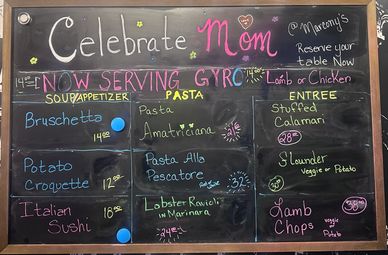 Celebrate Mom
@ Marcony's
Reserve your
table Now
14.00 NOW SERVING GYRO 14.00 Lamb or Chicken
SOUP/APPETIZER
Bruschetta
14.00
Potato
Croquette 12.00
Italian
Sushi 18.50
PASTA
Pasta
Amatriciana
Pasta Alla
Pescatore
32.
Lobster Ravioli
in Marinara
ENTREE
Stuffed
Calamari
28.00
Flounder
Veggie or Potato
Lamb
Chops
veggie or
Potato